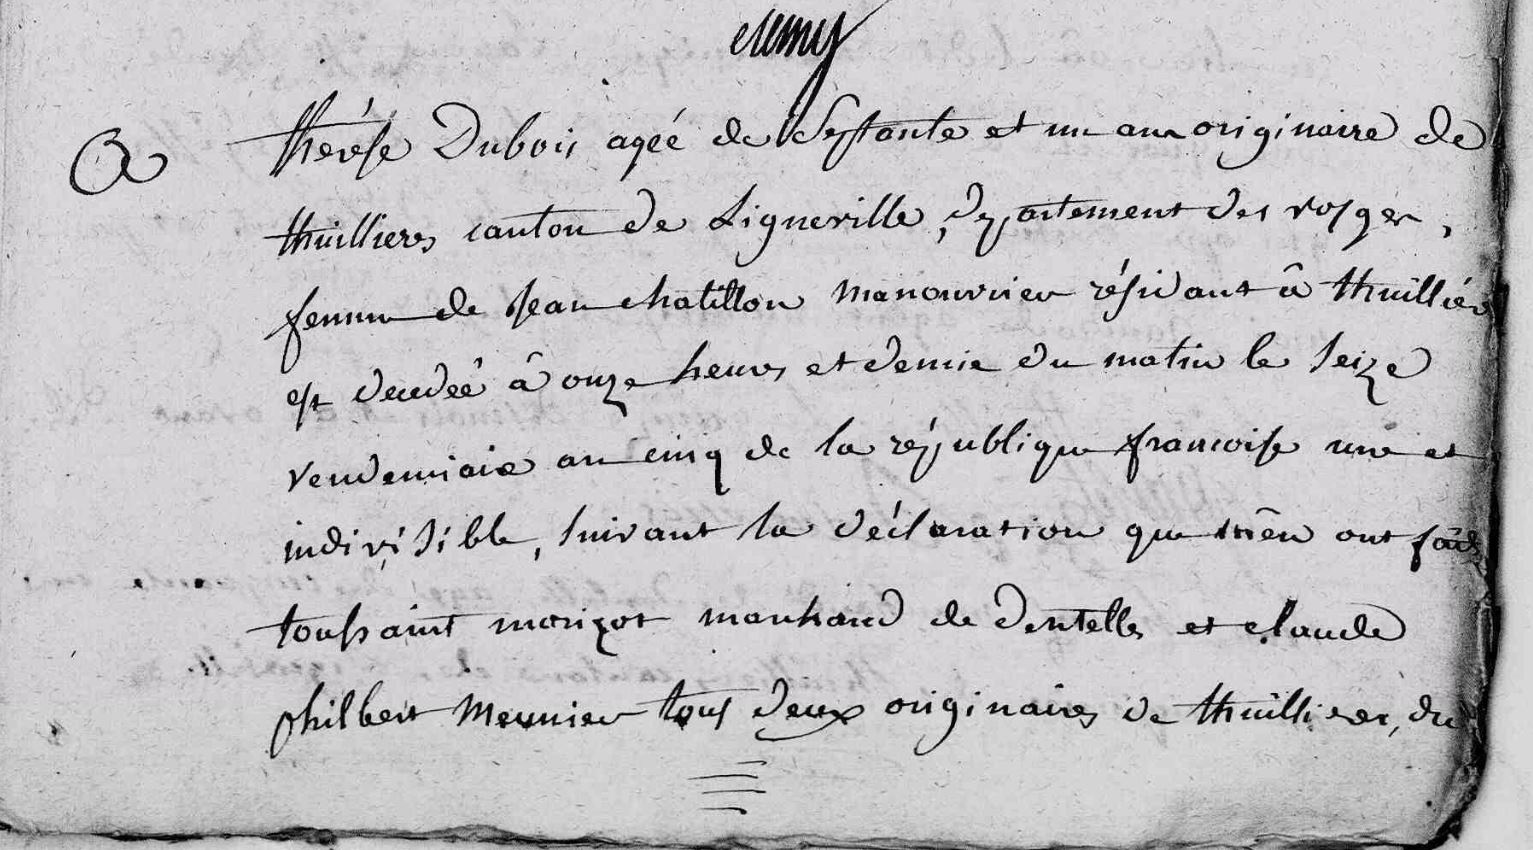 thérése Dubois ageé de Septante et un ans originaire de
thuillieres canton de Ligneville, département des vosges,
femme de Jean chatillon manouvrier résidant â thuillier
est decedeé â onze heures et demie du matin le seize
vendemiaire an cinq de la république francoise une et
indivisible, suivant la déclaration que m'en ont fait
toussaint morizot marchand de dentelles et claude
philbert Meunier tous deux originaires de thuillieres, du